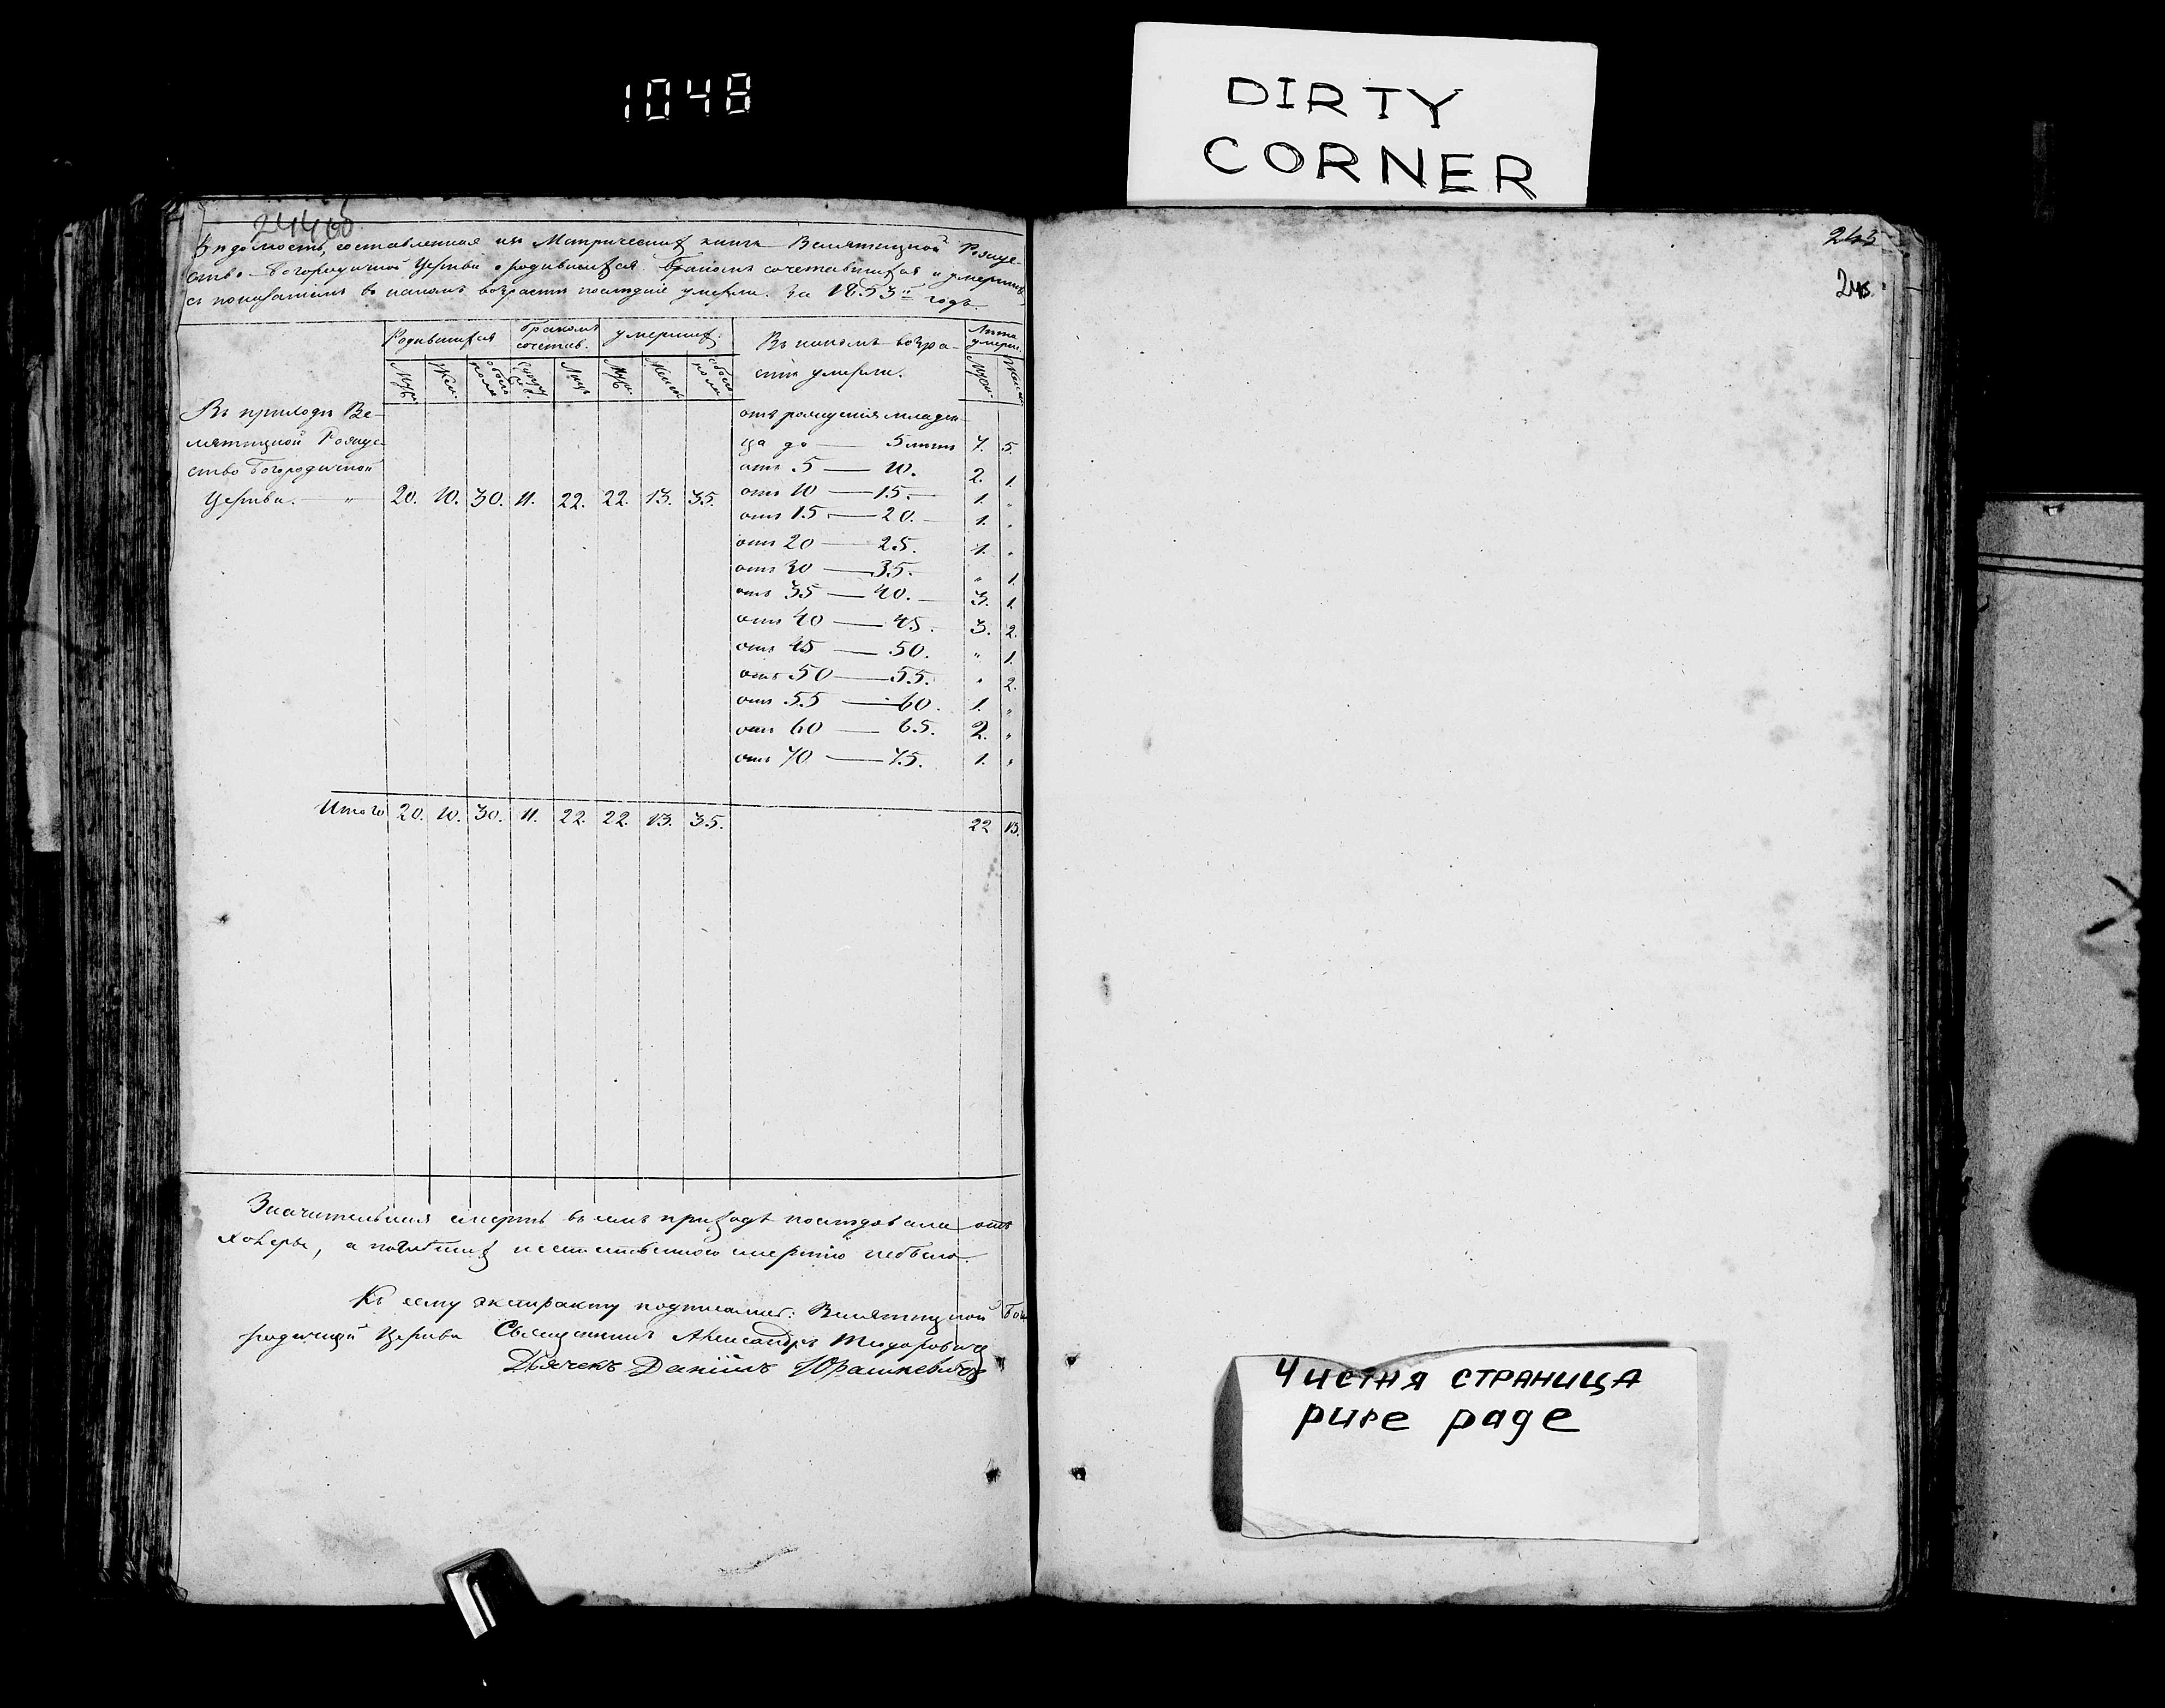 1048
DIRTY
CORNER
Ведомость, составленная изъ Метрическихъ книгъ Велятицкой Рожде-
ство-Богородичной Церкви о родившихся бракомъ сочетавшихся и умершихъ
съ показаніемъ въ какомъ возрасте последніе умерли. За 1853й годъ.
Родившихся Бракомъ сочетав. умершихъ. Въ какомъ возра- Лета умерш.
сте умерли.
Муж. Жен. обоего пола Лицъ Муж. Женск. обоего пола Муж. Женск.
Въ приходе Ве- отъ рожденія младен-
лятицкой Рожде- ца до — 5 летъ 7. 5.
ство Богородичной отъ 5 — 10. 2. 1.
Церкви. — " 20. 10. 30. 11. 22. 22. 13. 35. отъ 10 — 15. 1. "
отъ 15 — 20. 1. "
отъ 20 — 25. 1. "
отъ 30 — 35. " 1.
отъ 35 — 40. 3. 1.
отъ 40 — 45. 3. 2.
отъ 45 — 50. " 1.
отъ 50 — 55. " 2.
отъ 55 — 60. 1. "
отъ 60 — 65. 2. "
отъ 70 — 75. 1. "
Итого 20. 10. 30. 11. 22. 22. 13. 35. 22 13.
Значительная смерть въ семъ приходе последовала отъ
холеры, а погибшихъ неестественною смертію небыло.
Къ сему экстракту подписались: Велятицкой Бого
родичной Церкви Священникъ Александръ Теодоровичъ
Дьячекъ Даніилъ Юрашкевичъ
245
245.
Чистая страница
pure page